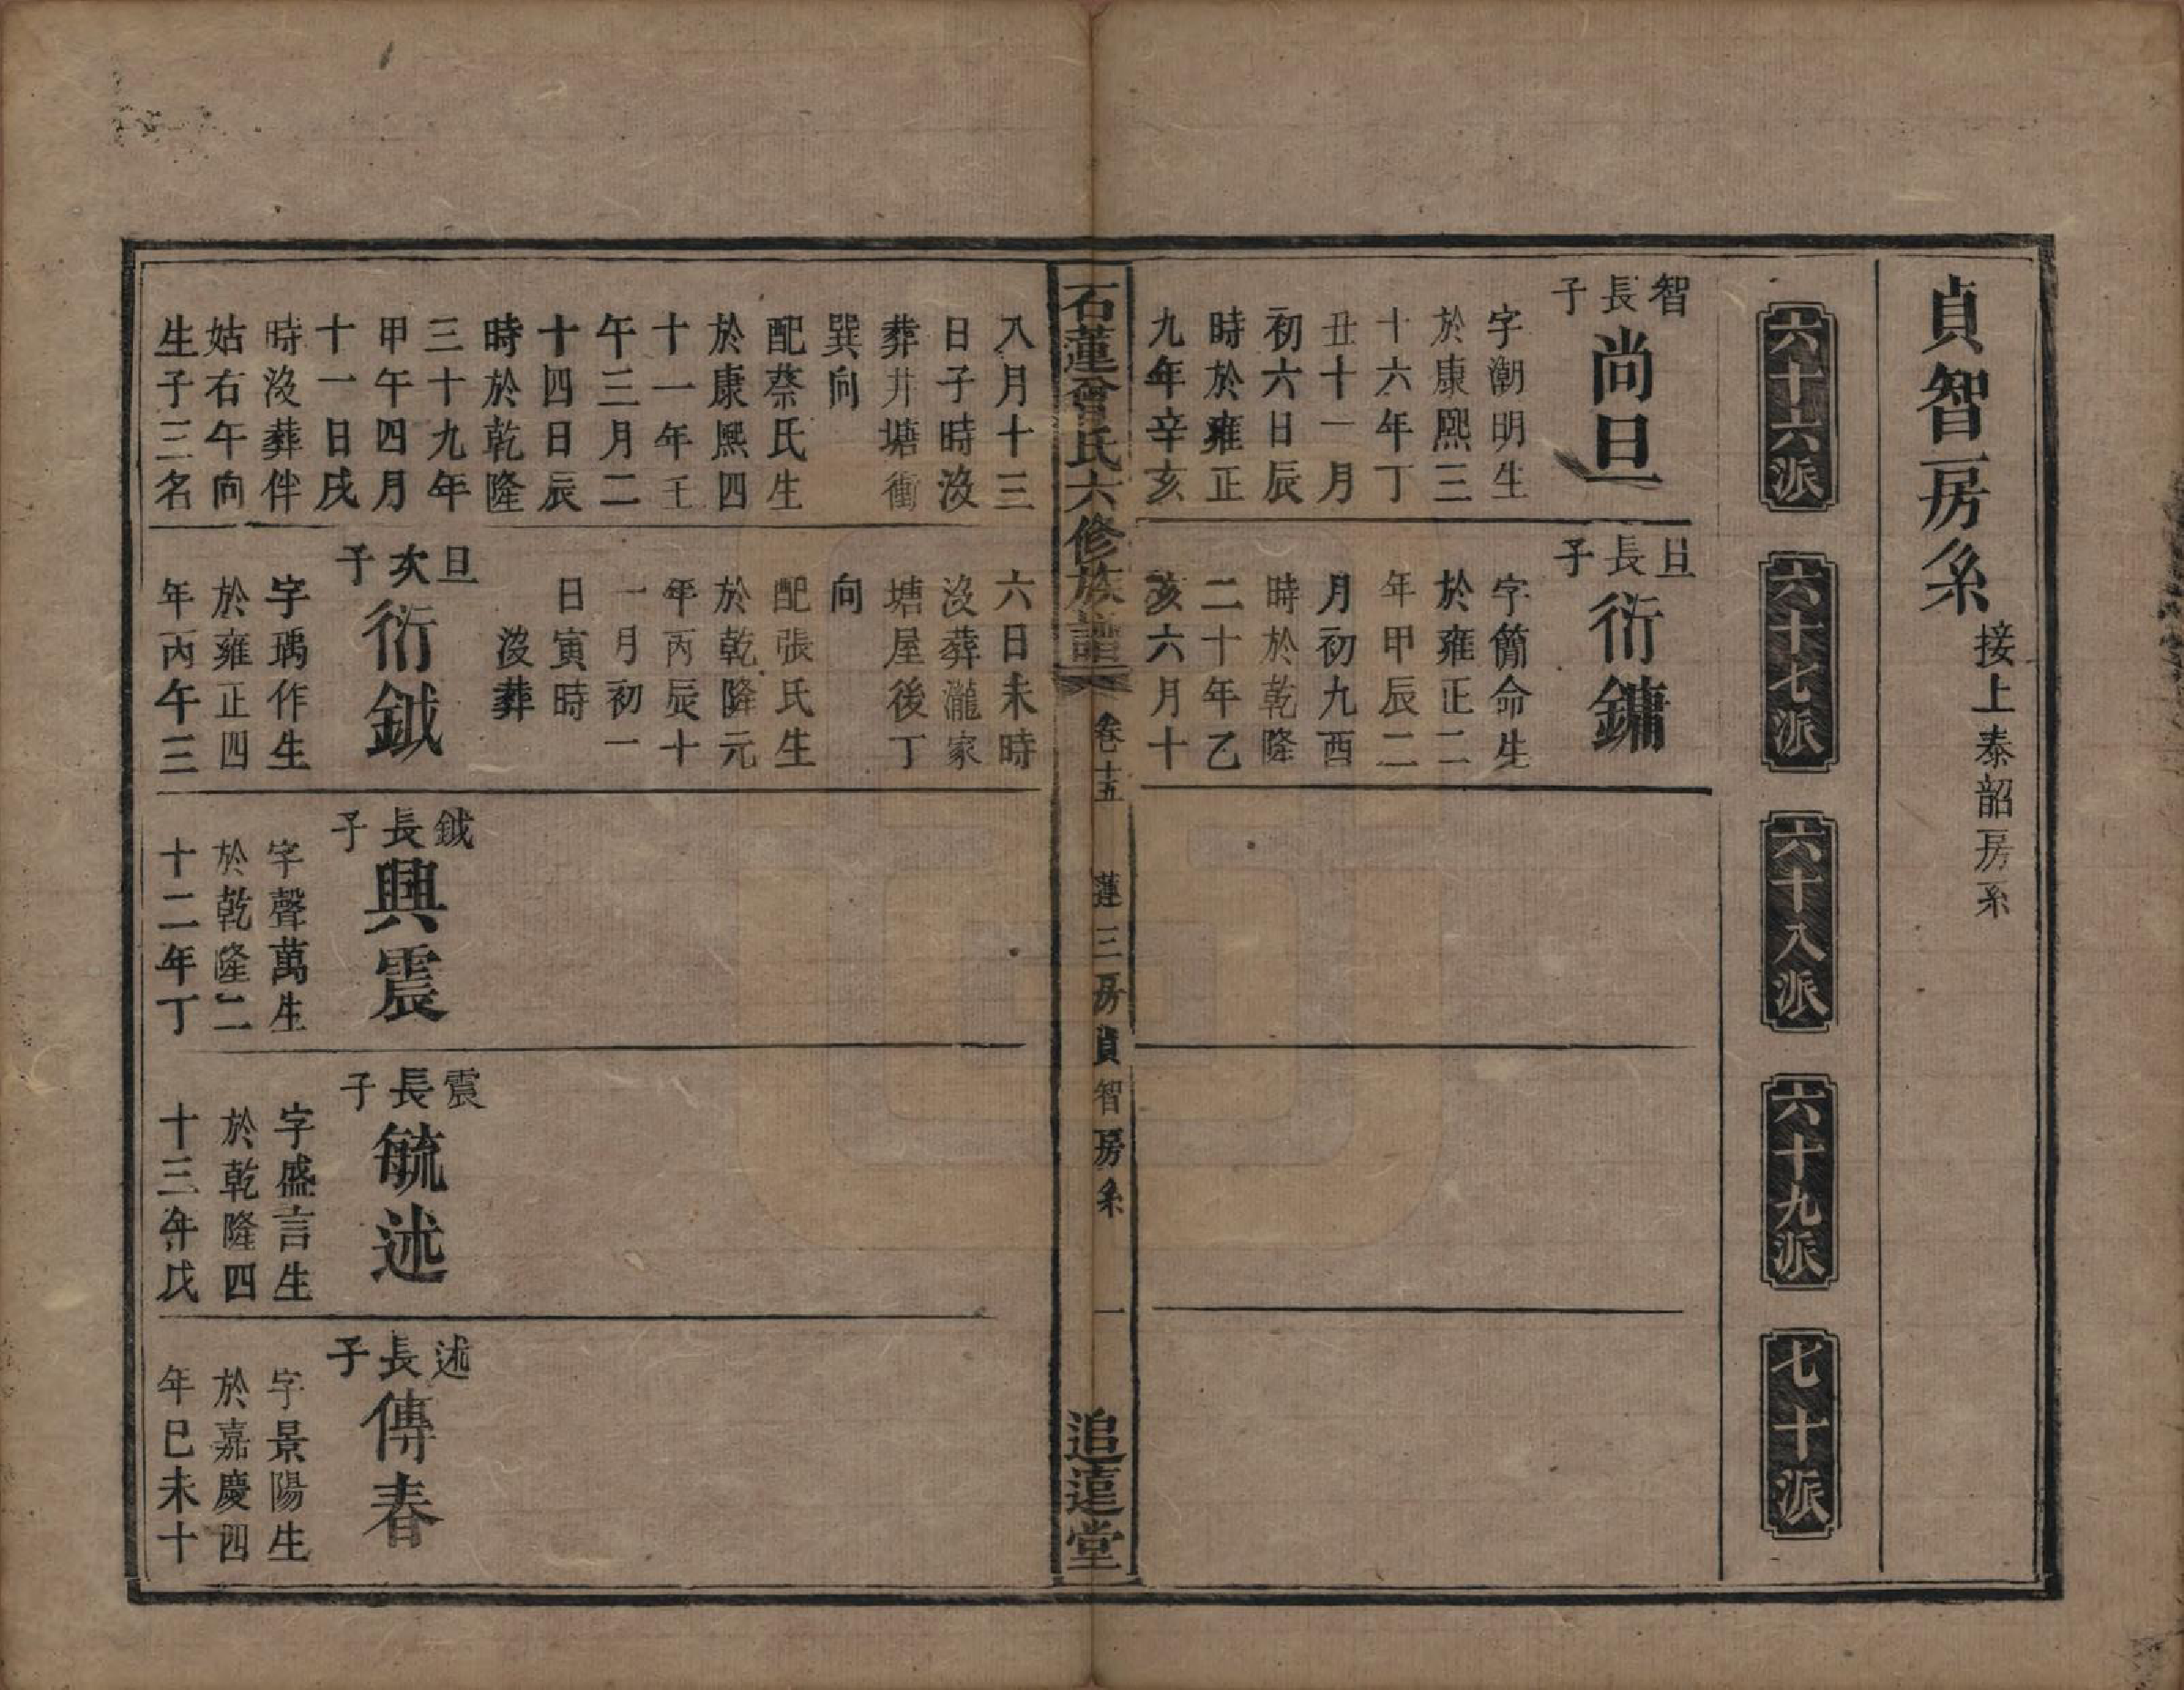 貞智房系
接上泰韶房系
六十六派
六十七派
六十八派
六十九派
七十派
智長子
尚旦
字潮明生
於康熙三
十六年丁
丑十一月
初六日辰
時於雍正
九年辛亥
旦長子
衍鏞
字簡命生
於雍正二
年甲辰二
月初九酉
時於乾隆
二十年乙
亥六月十
石蓮曾氏六修族譜
卷十五
蓮三房貞智房系
一
追遠堂
八月十三
日子時沒
葬井塘衝
巽向
配蔡氏生
於康熙四
十一年壬
午三月二
十四日辰
時於乾隆
三十九年
甲午四月
十一日戌
時沒葬伴
姑右午向
生子三名
六日未時
沒葬瀧家
塘屋後丁
向
配張氏生
於乾隆元
年丙辰十
一月初一
日寅時
沒葬
旦次子
衍鉞
字瑀作生
於雍正四
年丙午三
鉞長子
興震
字聲萬生
於乾隆二
十二年丁
震長子
毓述
字盛言生
於乾隆四
十三年戊
述長子
傳春
字景陽生
於嘉慶四
年巳未十